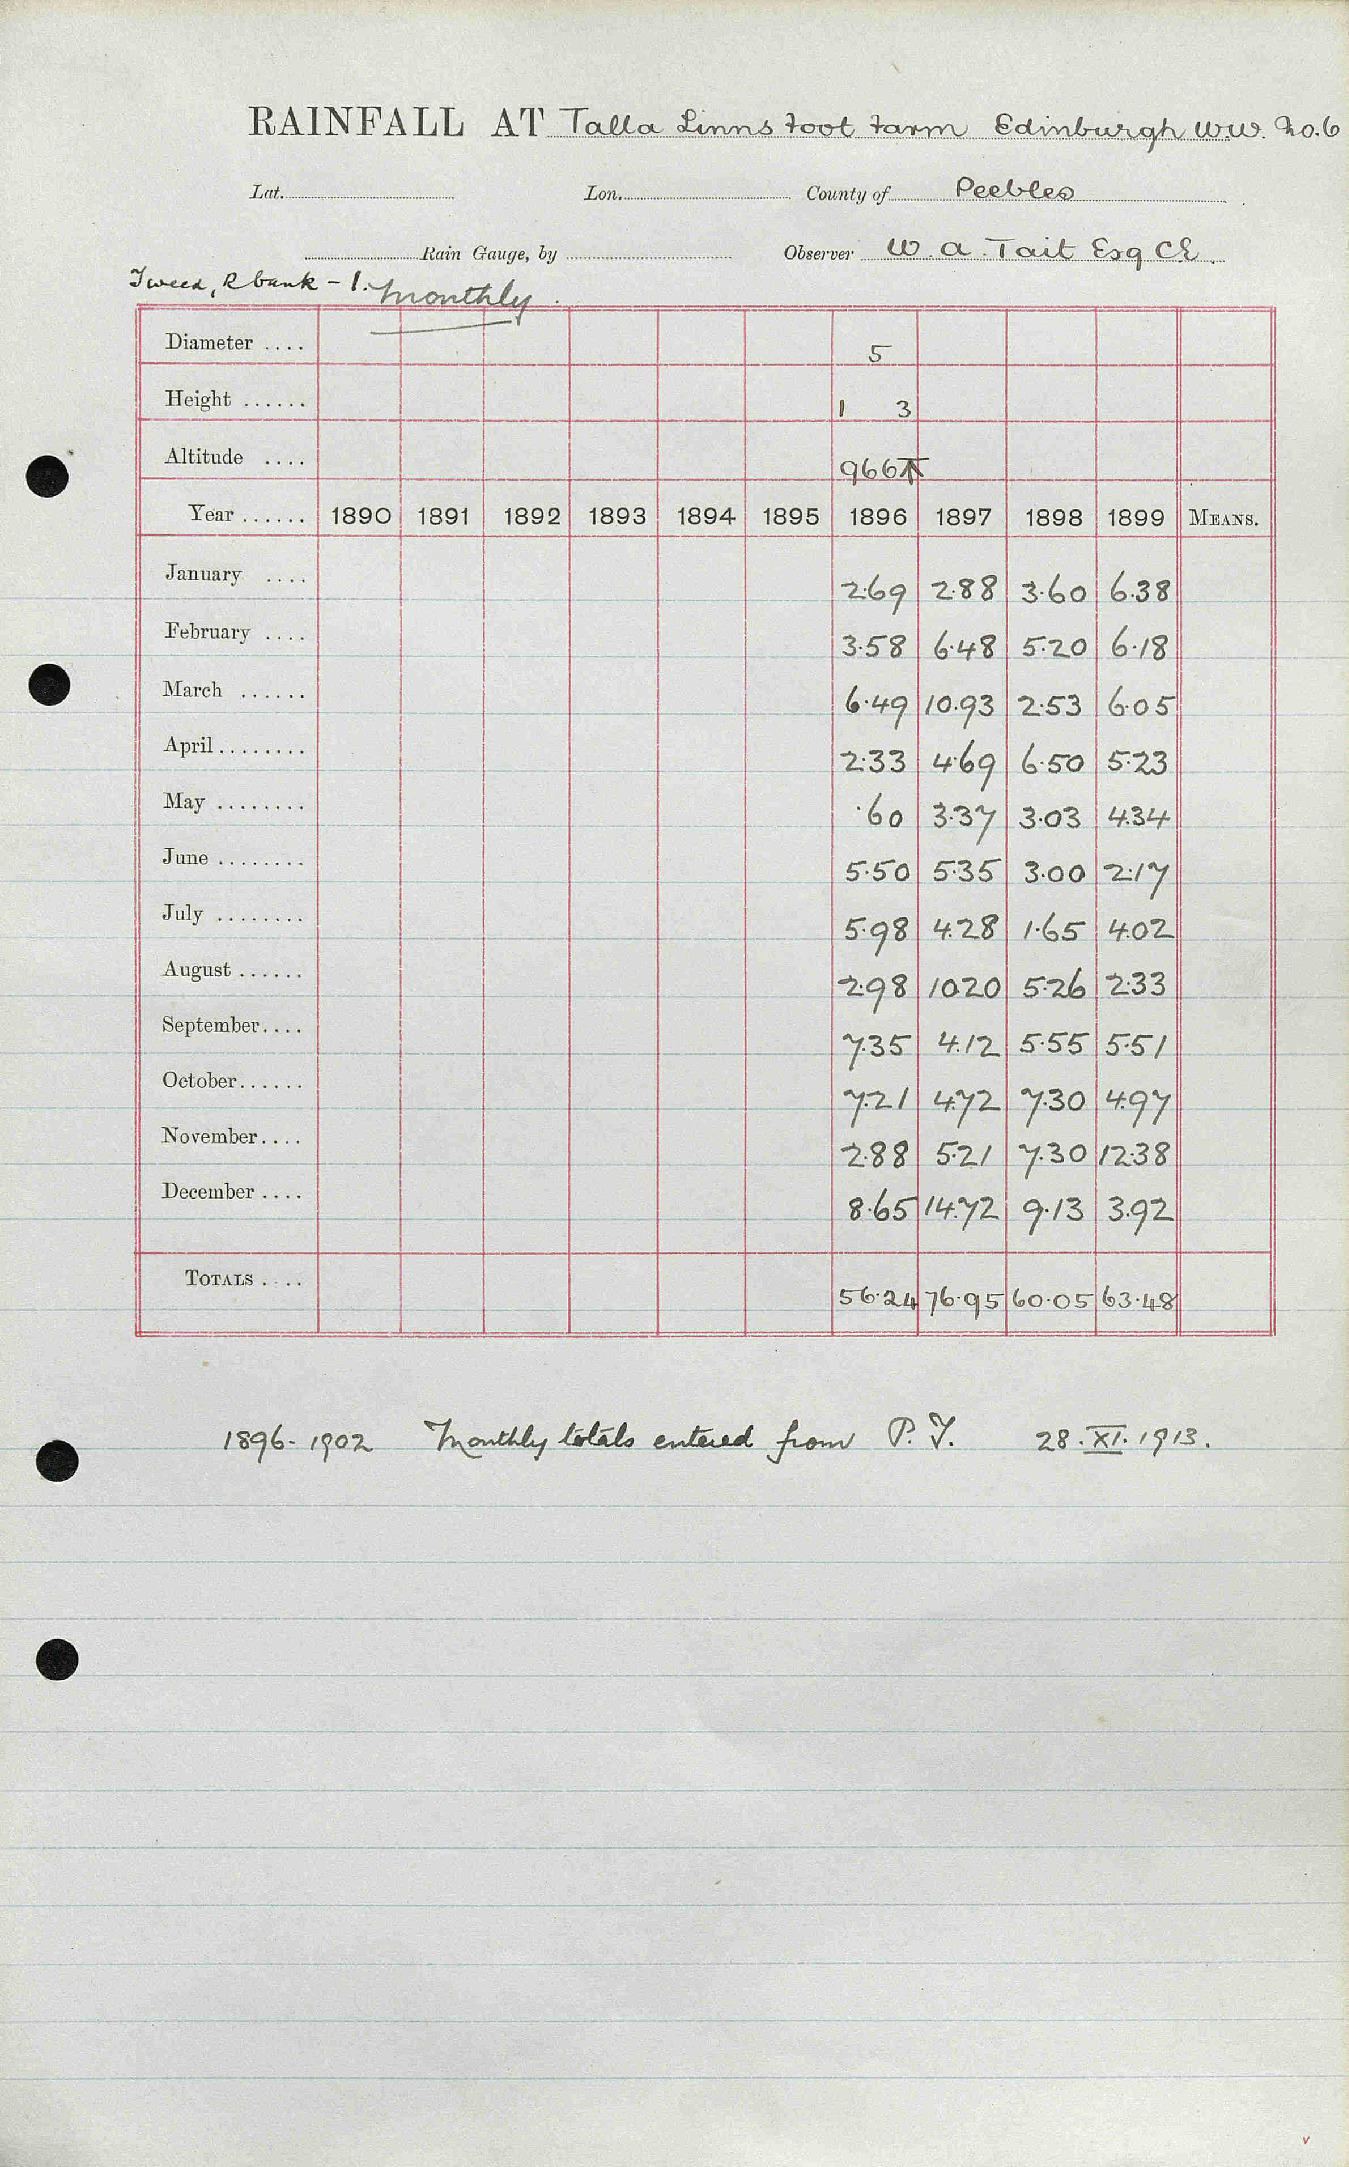 RAINFALL AT Talla Linns foot farm Edinburgh W.W. No.6
Lat. Lon. County of Peebles
Rain Gauge, by Observer W. A. Tait Esq CE.
Tweed, R bank - 1. Monthly
Diameter .... 5
Height ...... 1 3
Altitude .... 966
Year ...... 1890 1891 1892 1893 1894 1895 1896 1897 1898 1899 MEANS.
January .... 2.69 2.88 3.60 6.38
February .... 3.58 6.48 5.20 6.18
March ...... 6.49 10.93 2.53 6.05
April ........ 2.33 4.69 6.50 5.23
May ........ .60 3.37 3.03 4.34
June ........ 5.50 5.35 3.00 2.17
July ........ 5.98 4.28 1.65 4.02
August ...... 2.98 10.20 5.26 2.33
September.... 7.35 4.12 5.55 5.51
October...... 7.21 4.72 7.30 4.97
November.... 2.88 5.21 7.30 12.38
December .... 8.65 14.72 9.13 3.92
TOTALS .... 56.24 76.95 60.05 63.48
1896-1902 Monthly totals entered from P. T. 28.XI.1913.
v